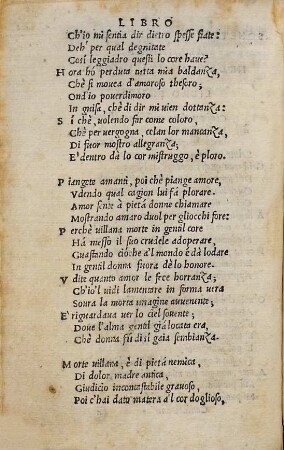 LIBRO
Ch'io mi sentia dir dietro spesse fiate:
Deh' per qual degnitate
Cosi leggiadro questi lo core haue?
Hora hò perduta tutta mia baldanza,
Chè si mouea d'amoroso thesoro;
Ond'io pouerdimoro
In guisa, chè di dir mi uien dottanza:
Si chè, uolendo far come coloro,
Chè per uergogna, celan lor mancanza,
Di fuor mostro allegranza;
E' dentro dà lo cor mi struggo, è ploro.
Piangete amanti, poi chè piange amore,
Vdendo qual cagion lui fà plorare.
Amor sente à pietà donne chiamare
Mostrando amaro duol per gliocchi fore:
Perchè uillana morte in gentil core
Hà messo il suo crudele adoperare,
Guastando ciò che al mondo è dà lodare
In gentil donna fuora dè lo honore.
Vdite quanto amor le fece horranza;
Ch'io'l uidi lamentare in forma uera
Soura la morta imagine auuenente;
E' riguardaua uer lo ciel souente;
Doue l'alma gentil già locata era,
Chè donna fù di sì gaia sembianza.
Morte uillana, è di pietà nemica,
Di dolor madre antica,
Giudicio incontastabile grauoso,
Poi c'hai dato matera al cor doglioso,